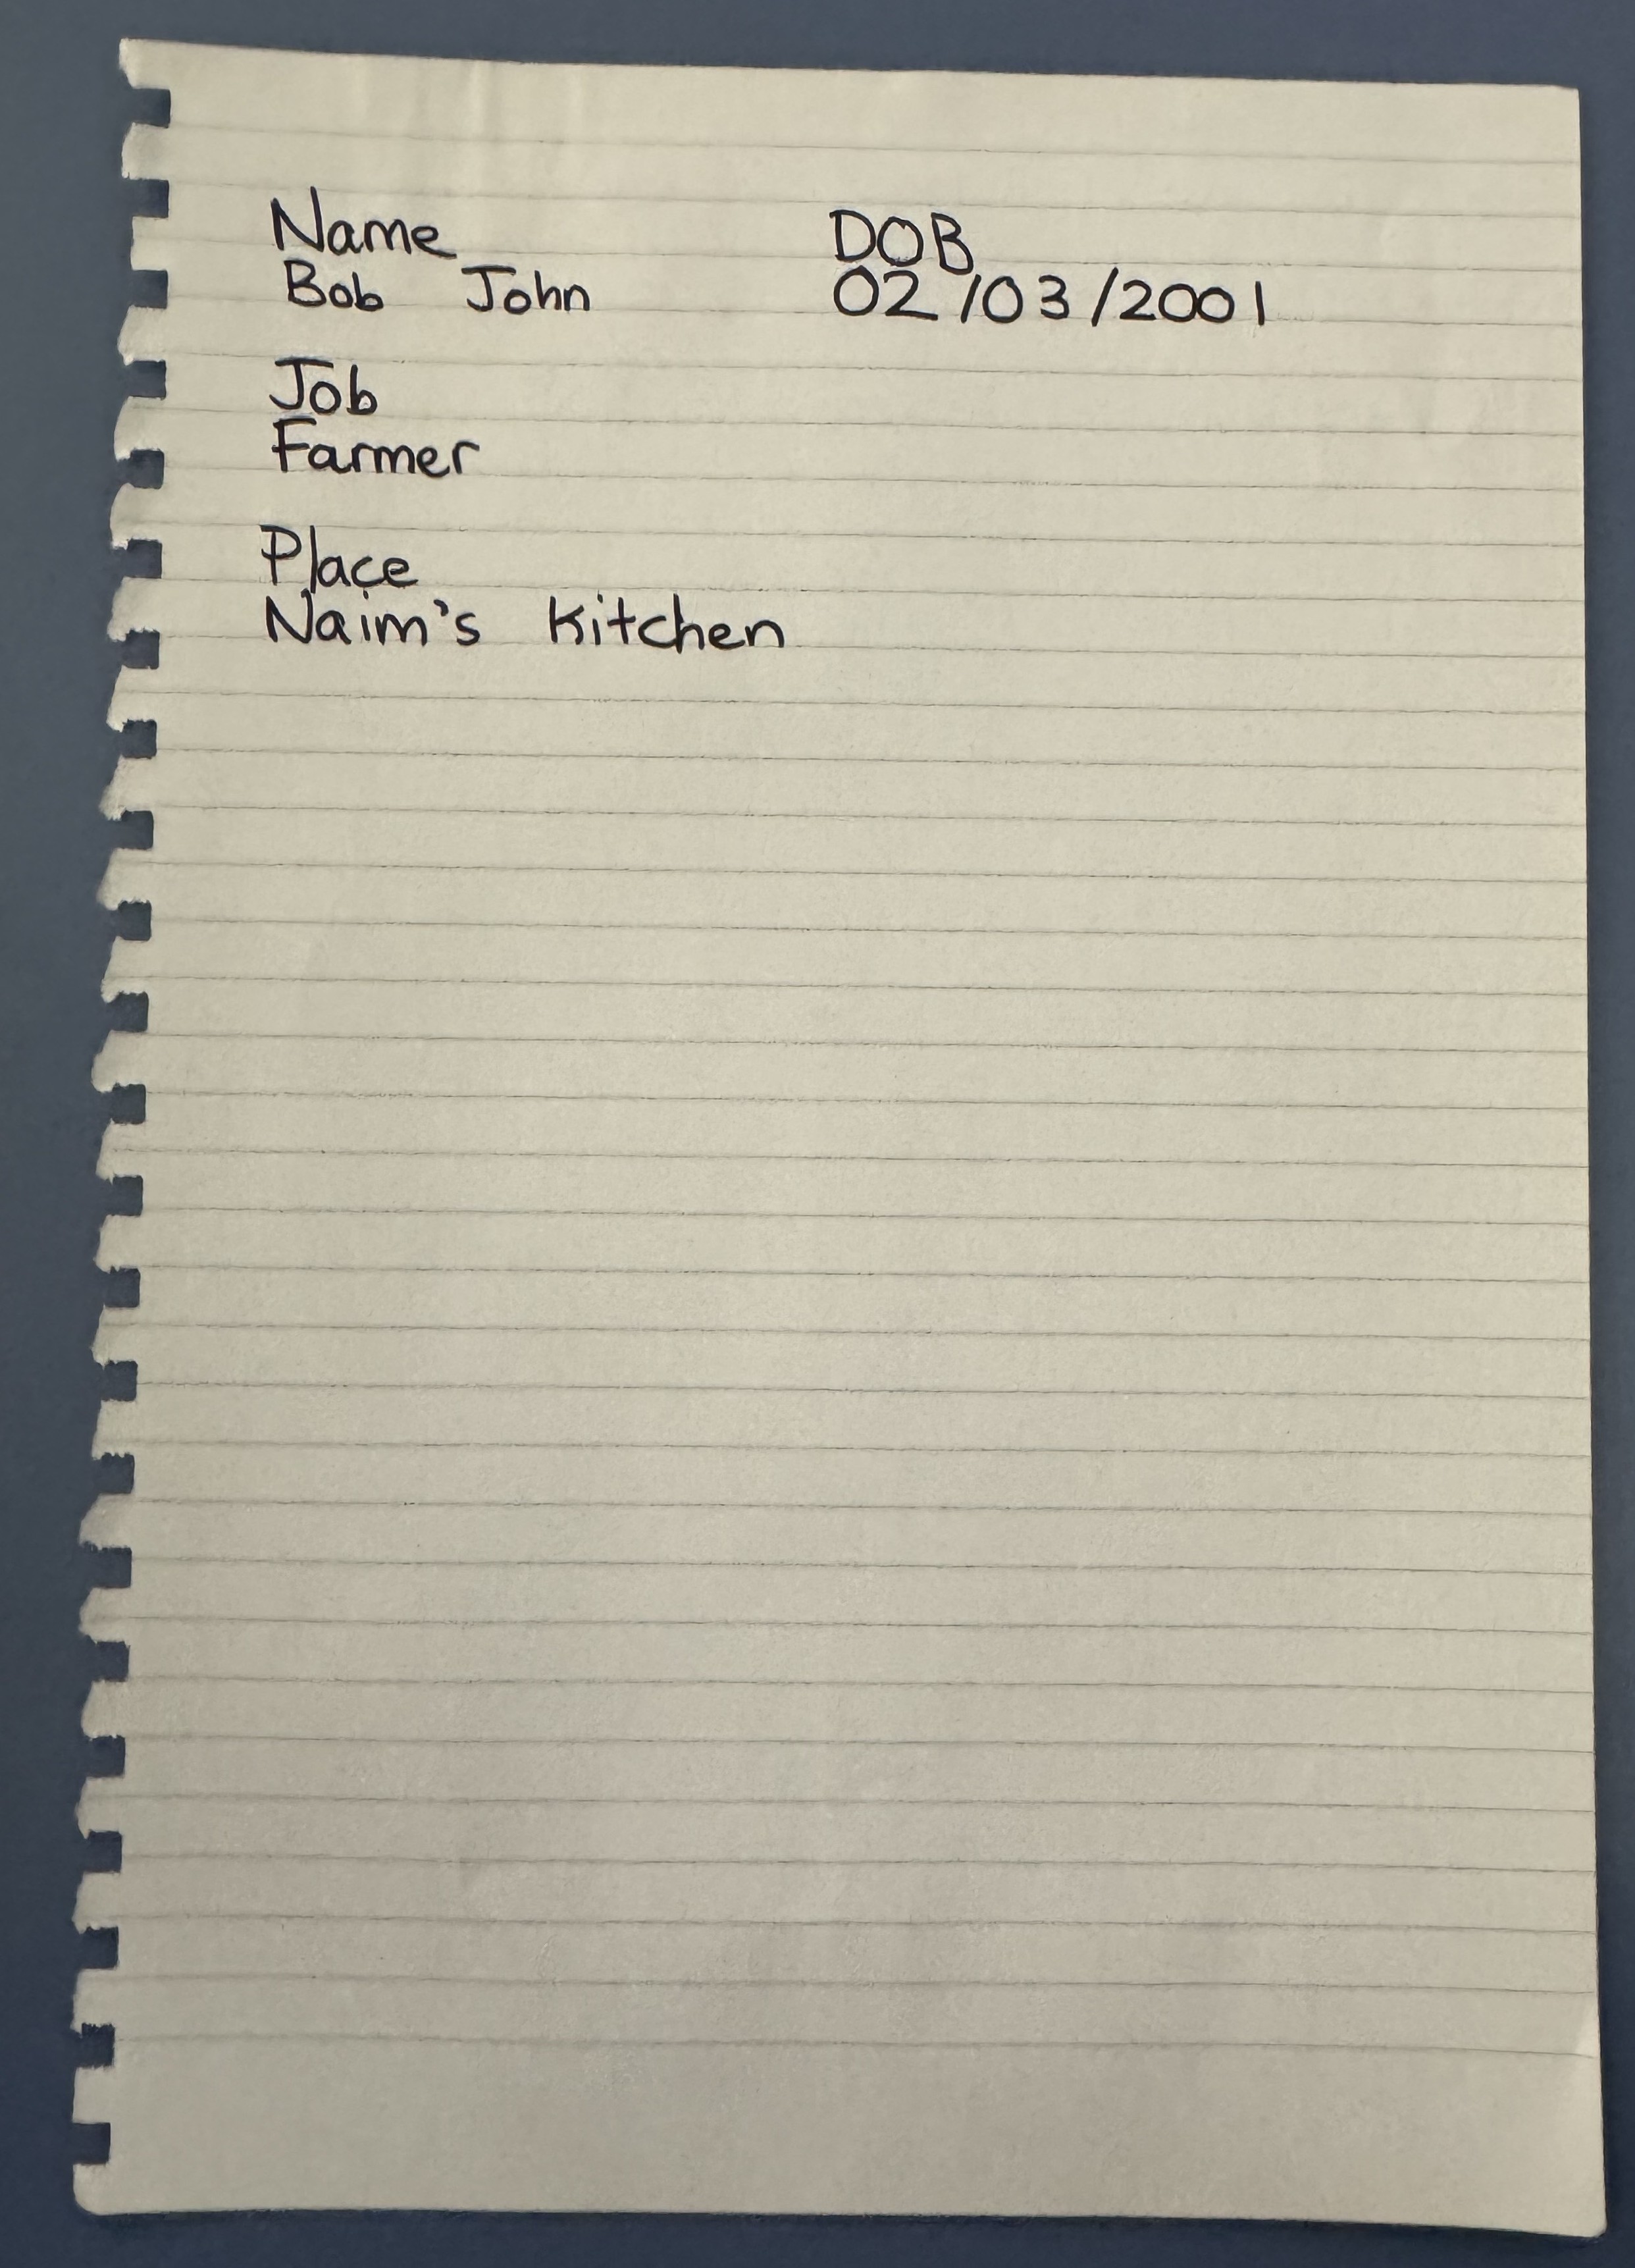 Name DOB
Bob John 02/03/2001
Job
Farmer
Place
Naim's Kitchen